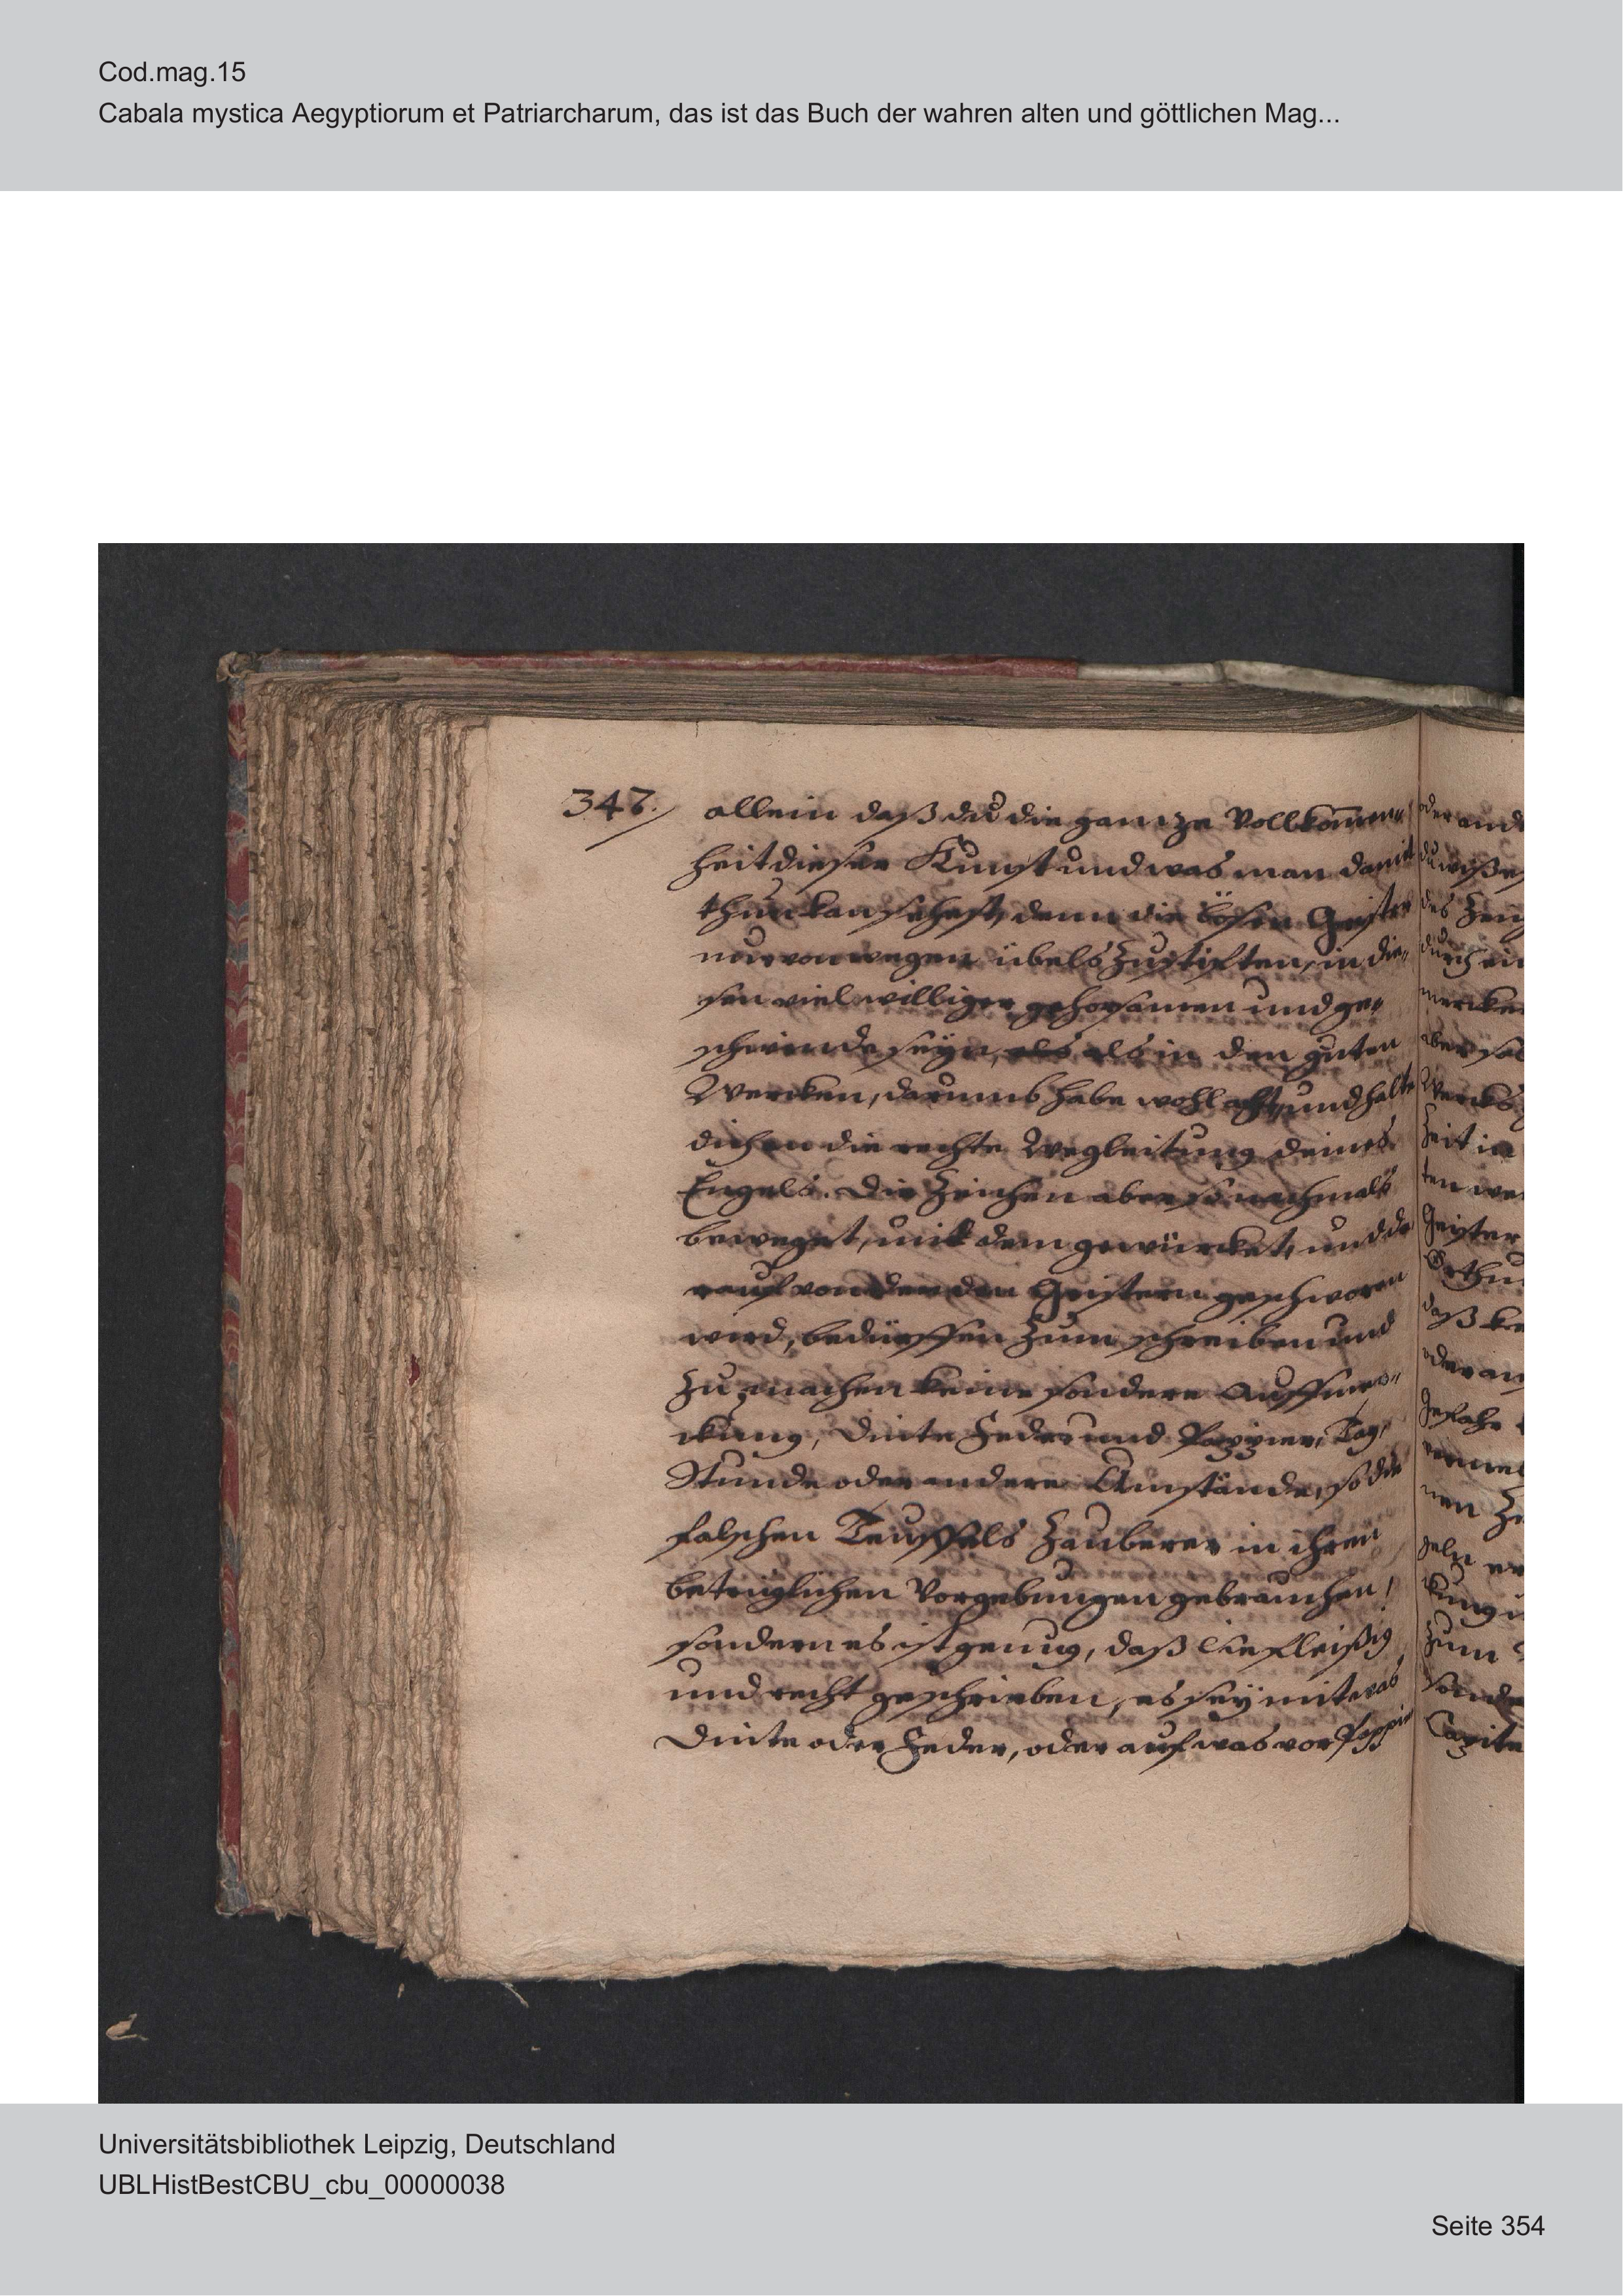 Cod.mag.15
Cabala mystica Aegyptiorum et Patriarcharum, das ist das Buch der wahren alten und göttlichen Mag...
347.
allein daß du die ganze Vollkom̄en„
heit dieser Kunst und was man damit
thun kan sehest, denn die bösen Geister
nur von wegen übels zustifften, in die„
sen viel williger gehorsamen und ge„
schwinde seyn, als in den guten
Wercken, darumb habe wohl acht, und halte
dich an die rechte Wegleitung deines
Engels. Die Zeichen aber so nachmals
beweget, mit dem gewürcket, und da
rauf von den Geistern geschworen
wird, bedürffen zum schreiben und
zu machen keine sondere Auffmer„
ckung, Dinte Feder und Pappier, Tag,
Stunde oder andere Umstände, so die
falschen Teuffels Zauberer in ihren
betrüglichen Vorgebungen gebrauchen,
sondern es ist genung, daß sie fleißig
und recht geschrieben, es sey mit was
Dinte oder Feder, oder auf was vor Pappier
Universitätsbibliothek Leipzig, Deutschland
UBLHistBestCBU_cbu_00000038
Seite 354